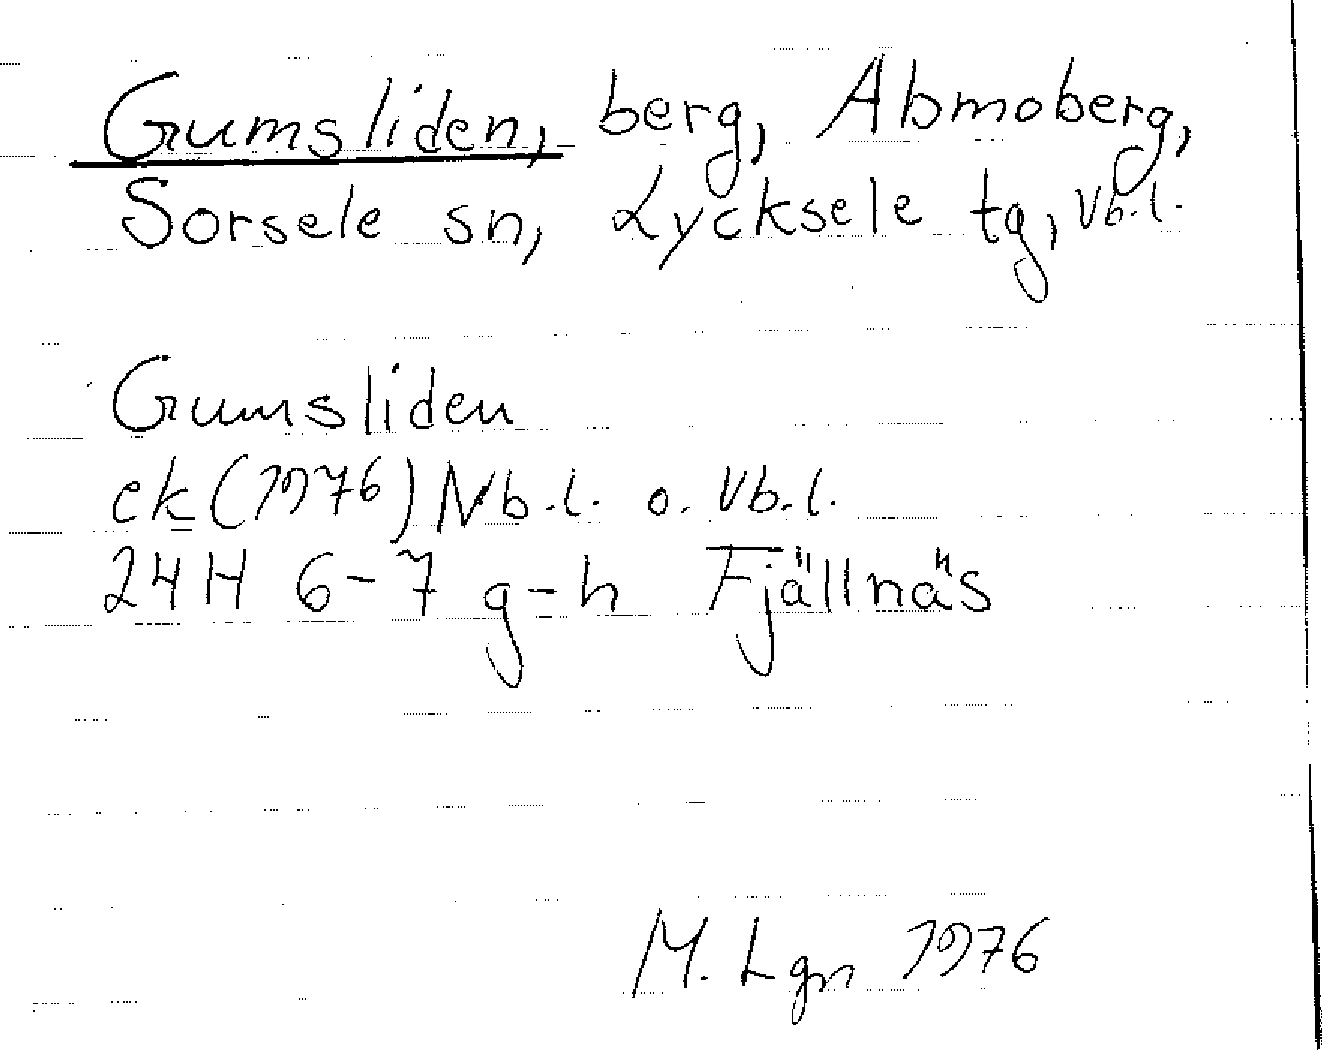 Gumsliden, berg, Abmoberg,
Sorsele sn, Lycksele tg, Vb.l.
Gumsliden
ek (1976) Nb.l. o. Vb.l.
24H 6-7 g-h Fjällnäs
M. Lgn 1976